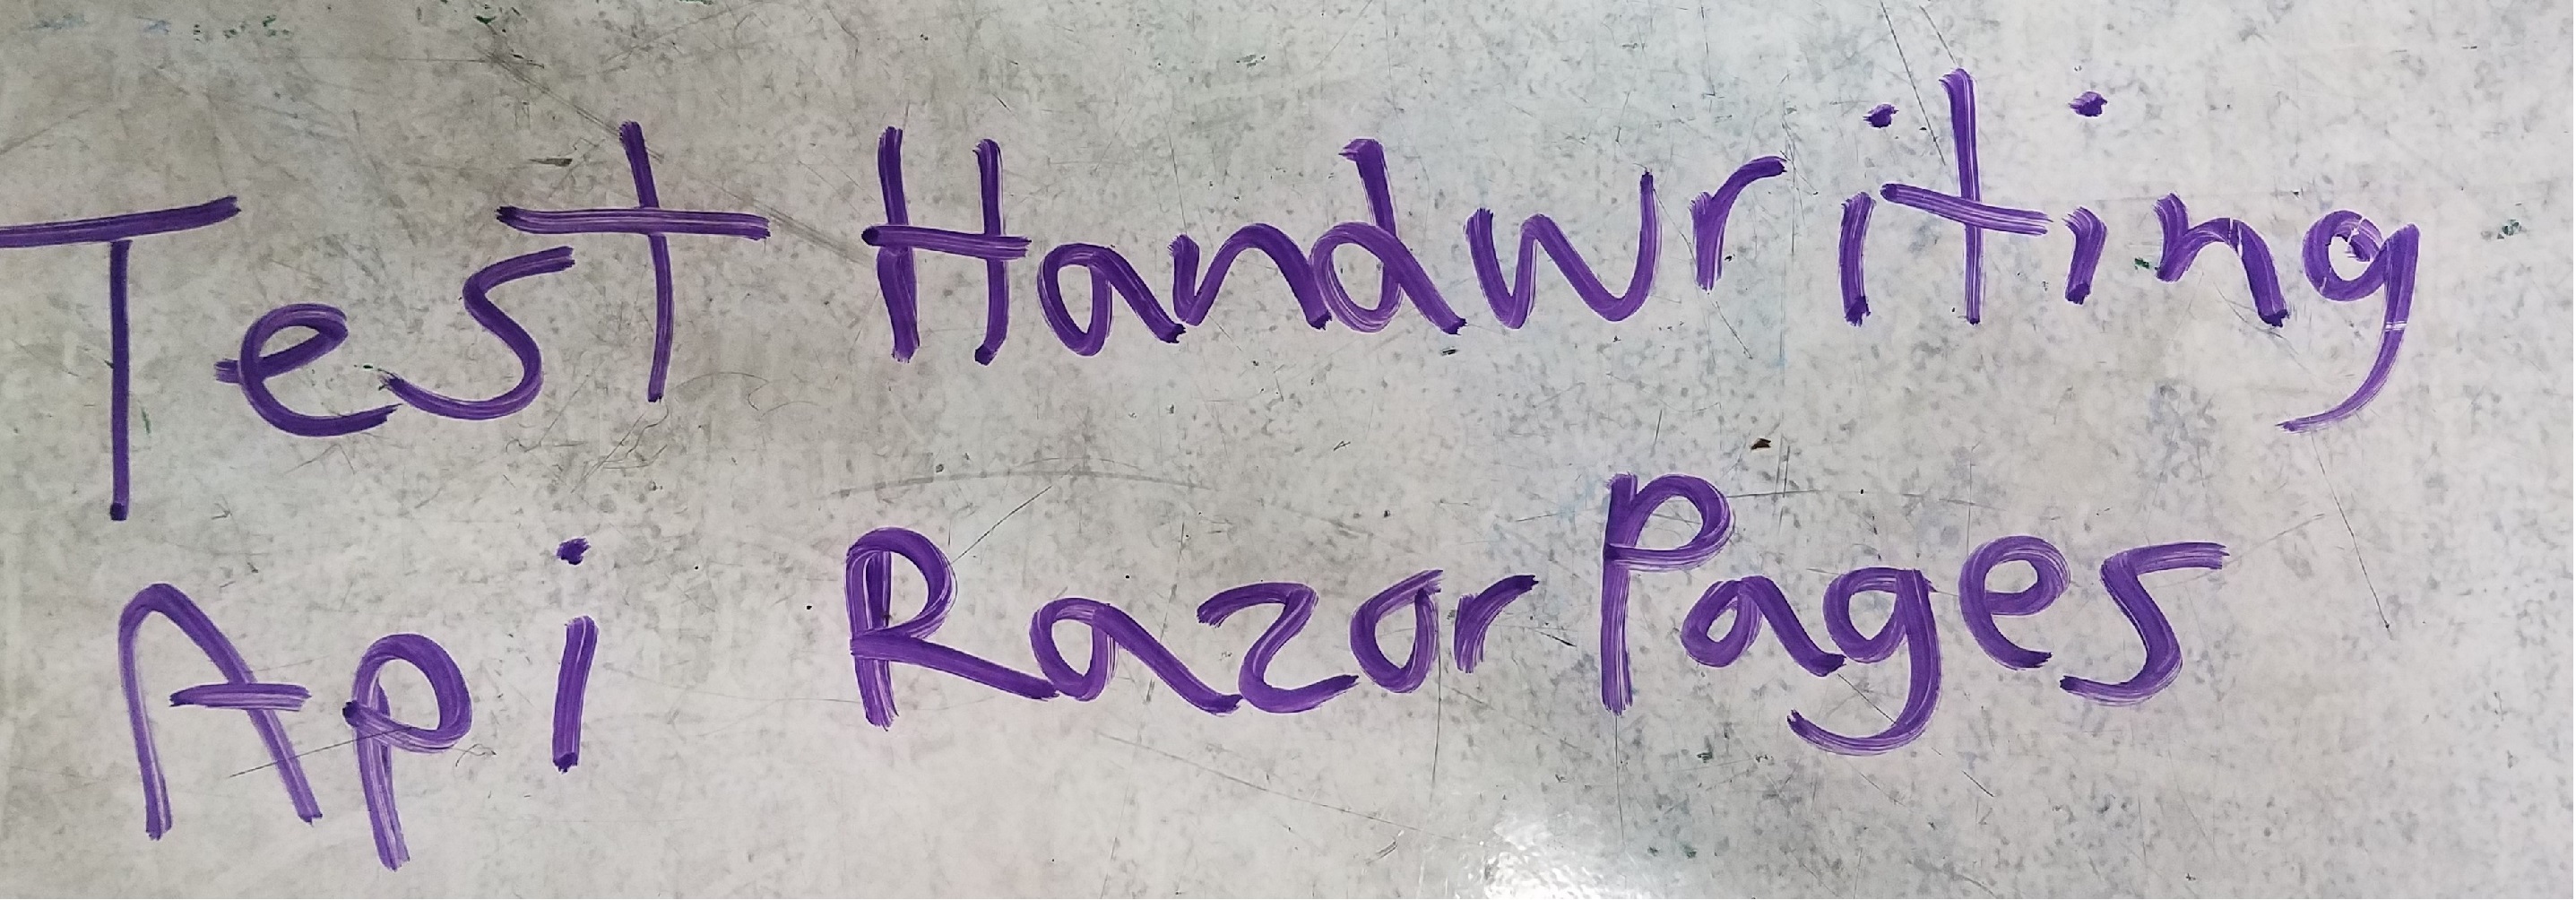 Test Handwriting
Api Razor Pages